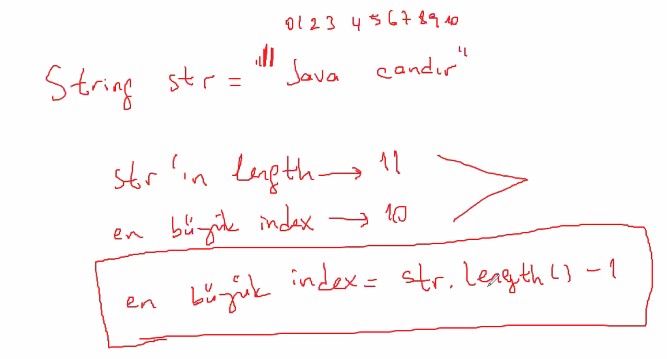 0123 45678910
String str = "Java candır"
str'in length → 11
en büyük index → 10
en büyük index = str.length() - 1